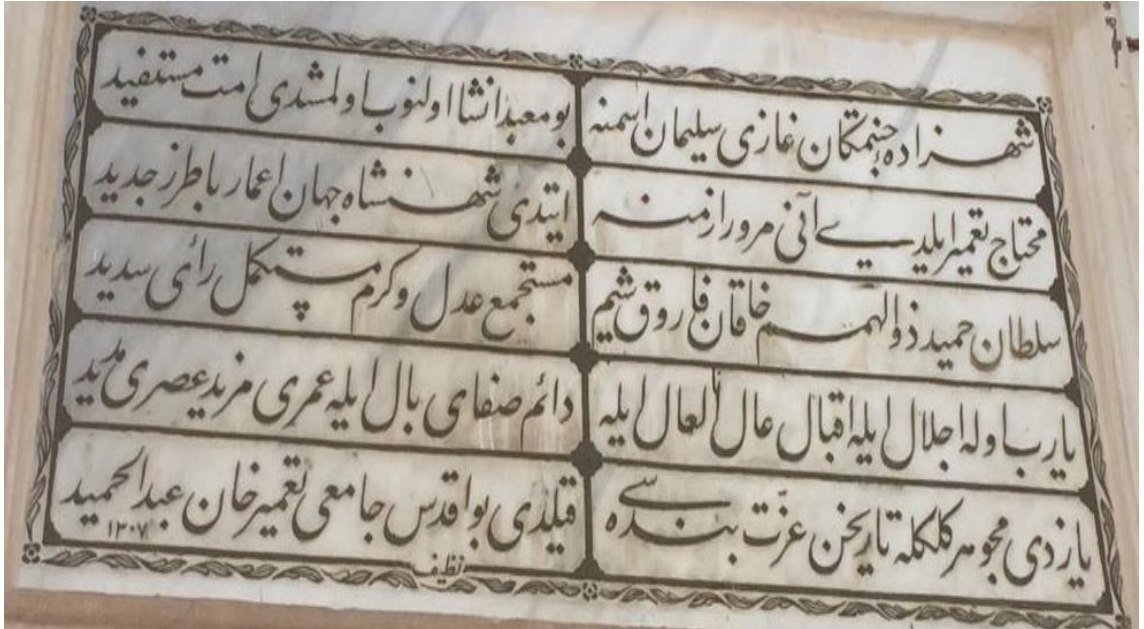 شهزادهٔ جنتمکان غازی سلیمان اسمنه
بو معبد انشا اولنوب اولمشدی امت مستفید
محتاج تعمیر ایلدی آنی مرور ازمنه
ایتدی شهنشاه جهان اعمار با طرز جدید
سلطان حمید ذوالهمم خاقان فاروق شیم
مستجمع عدل و کرم مستکمل رأی سدید
یارب اوله اجلال ایله اقبال عال العال ایله
دائم صفای بال ایله عمری مزید عصری مدید
یازدی مجوهر کلکله تاریخن عزت بنده سی
قیلدی بو اقدس جامعی تعمیر خان عبدالحمید
۱۳۰۷
نظیف